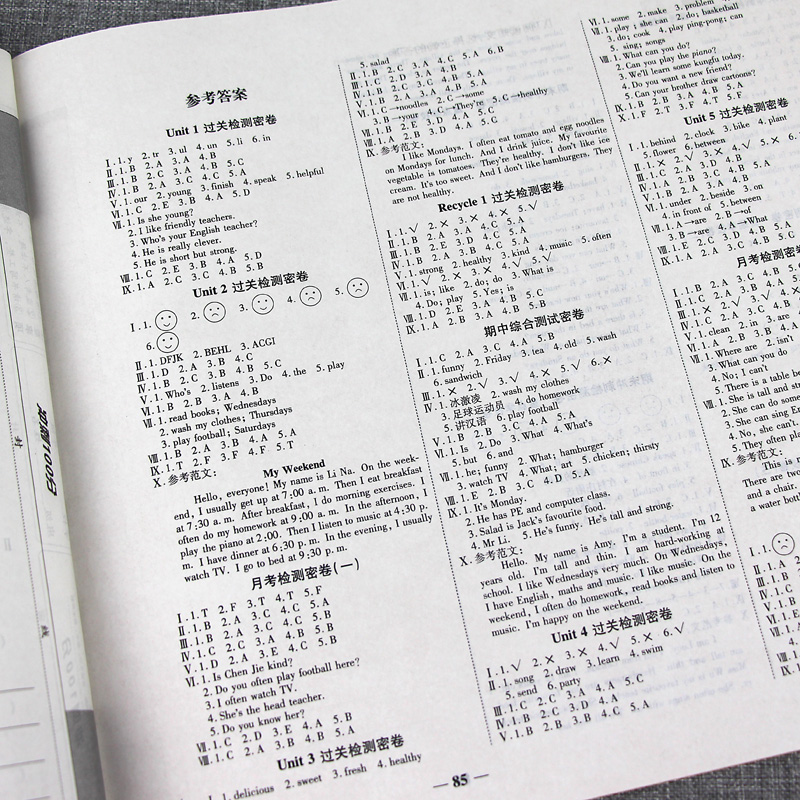 参考答案
Unit 1 过关检测密卷
Ⅰ.1.y 2.tr 3.ul 4.un 5.li 6.in
Ⅱ.1.B 2.A 3.A 4.B
Ⅲ.1.B 2.C 3.A 4.B 5.C
Ⅳ.1.B 2.A 3.C 4.C 5.A
Ⅴ.1.our 2.young 3.finish 4.speak 5.helpful
Ⅵ.1.C 2.E 3.B 4.A 5.D
Ⅶ.1.Is she young?
2.I like friendly teachers.
3.Who's your English teacher?
4.He is really clever.
5.He is short but strong.
Ⅷ.1.C 2.E 3.B 4.A 5.D
Ⅸ.1.A 2.C 3.C 4.B 5.B
Unit 2 过关检测密卷
Ⅰ.1. 2. 3. 4. 5.
6.
Ⅱ.1.DFJK 2.BEHL 3.ACGI
Ⅲ.1.D 2.A 3.B 4.C
Ⅳ.1.B 2.C 3.B 4.B 5.A
Ⅴ.1.Who's 2.listens 3.Do 4.the 5.play
Ⅵ.1.B 2.B 3.A 4.B
Ⅶ.1.read books; Wednesdays
2.wash my clothes; Thursdays
3.play football; Saturdays
Ⅷ.1.B 2.A 3.B 4.A 5.A
Ⅸ.1.T 2.F 3.F 4.F 5.T
Ⅹ.参考范文:
My Weekend
Hello, everyone! My name is Li Na. On the week-
end, I usually get up at 7:00 a.m. Then I eat breakfast
at 7:30 a.m. After breakfast, I do morning exercises. I
often do my homework at 9:00 a.m. In the afternoon, I
play the piano at 2:00. Then I listen to music at 4:30 p.
m. I have dinner at 6:30 p.m. In the evening, I usually
watch TV. I go to bed at 9:30 p.m.
月考检测密卷(一)
Ⅰ.1.T 2.F 3.T 4.T 5.F
Ⅱ.1.B 2.A 3.C 4.C 5.A
Ⅲ.1.B 2.A 3.C 4.C 5.B
Ⅳ.1.C 2.C 3.A 4.B 5.B
Ⅴ.1.D 2.A 3.E 4.C 5.B
Ⅵ.1.Is Chen Jie kind?
2.Do you often play football here?
3.I often watch TV.
4.She's the head teacher.
5.Do you know her?
Ⅶ.1.C 2.D 3.E 4.A 5.B
Ⅷ.1.C 2.A 3.B 4.B 5.A
Unit 3 过关检测密卷
Ⅰ.1.delicious 2.sweet 3.fresh 4.healthy
5.salad
Ⅱ.1.B 2.C 3.A 4.C 5.A 6.B
Ⅲ.1.C 2.D 3.A 4.B
Ⅳ.1.B 2.C 3.C 4.B 5.A
Ⅴ.1.B 2.A 3.A 4.B 5.A
Ⅵ.1.C→noodles 2.C→some
3.B→your 4.C→They're 5.C→healthy
Ⅶ.1.B 2.E 3.D 4.A 5.C
Ⅷ.1.A 2.B 3.D 4.A 5.C
Ⅸ.参考范文:
I like Mondays. I often eat tomato and egg noodles
on Mondays for lunch. And I drink juice. My favourite
vegetable is tomatoes. They're healthy. I don't like ice
cream. It's too sweet. And I don't like hamburgers. They
are not healthy.
Recycle 1 过关检测密卷
Ⅰ.1.√ 2.× 3.× 4.× 5.√
Ⅱ.1.B 2.A 3.A 4.C 5.A
Ⅲ.1.B 2.E 3.D 4.C 5.A
Ⅳ.1.B 2.A 3.B 4.C 5.A
Ⅴ.1.strong 2.healthy 3.kind 4.music 5.often
Ⅵ.1.√ 2.× 3.× 4.√ 5.√
Ⅶ.1.is; like 2.do; do 3.What is
4.Do; play 5.Yes; is
Ⅷ.1.D 2.E 3.A 4.B 5.C
Ⅸ.1.A 2.B 3.A 4.B 5.A
期中综合测试密卷
Ⅰ.1.C 2.A 3.C 4.A 5.B
Ⅱ.1.funny 2.Friday 3.tea 4.old 5.wash
6.sandwich
Ⅲ.1.× 2.√ 3.√ 4.× 5.√ 6.×
Ⅳ.1.冰激凌 2.wash my clothes
3.足球运动员 4.do homework
5.讲汉语 6.play football
Ⅴ.1.B 2.B 3.C 4.A 5.A
Ⅵ.1.Is 2.Do 3.What 4.What's
5.but 6.and
Ⅶ.1.he; funny 2.What; hamburger
3.watch TV 4.What; art 5.chicken; thirsty
Ⅷ.1.E 2.B 3.C 4.D 5.A
Ⅸ.1.It's Monday.
2.He has PE and computer class.
3.Salad is Jack's favourite food.
4.Mr Li. 5.He's funny. He's tall and strong.
Ⅹ.参考范文:
Hello. My name is Amy. I'm a student. I'm 12
years old. I'm tall and thin. I am hard-working at
school. I like Wednesdays very much. On Wednesdays,
I have English, maths and music. I like music. On the
weekend, I often do homework, read books and listen to
music. I'm happy on the weekend.
Unit 4 过关检测密卷
Ⅰ.1.√ 2.× 3.× 4.√ 5.× 6.√
Ⅱ.1.song 2.draw 3.learn 4.swim
5.send 6.party
Ⅲ.1.C 2.C 3.A 4.A 5.C
Ⅳ.1.B 2.C 3.D 4.A
Ⅴ.1.B 2.B 3.B 4.C 5.A
Ⅵ.1.some 2.make 3.problem
Ⅶ.1.play; she can 2.do; basketball
3.do; cook 4.play ping-pong; can
5.sing; songs
Ⅷ.1.What can you do?
2.Can you play the piano?
3.We'll learn some kungfu today.
4.Do you want a new friend?
5.Can your brother draw cartoons?
Ⅸ.1.B 2.B 3.A 4.B 5.A
Ⅹ.1.F 2.T 3.F 4.T 5.F
Unit 5 过关检测密卷
Ⅰ.1.behind 2.clock 3.bike 4.plant
5.flower 6.between
Ⅵ.1.under 2.beside 3.on
4.in front of 5.between
Ⅶ.1.A→are 2.B→of
3.B→are 4.A→What
月考检测密
Ⅴ.1.clean 2.in 3.are
Ⅶ.1.Where are 2.isn't
3.What can you do
4.No; I can't
5.There is a table be
Ⅷ.1.She is tall and str
2.She can do some
3.She can sing En
4.No, she can't.
5.They often play
This is m
There are two
and a chair.
a water bottl
— 85 —